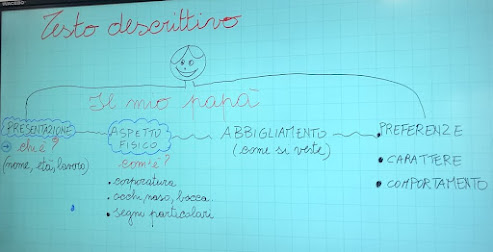 Testo descrittivo
Il mio papà
PRESENTAZIONE
chi è?
(nome, età, lavoro)
ASPETTO
FISICO
com'è?
• corporatura
• occhi, naso, bocca...
• segni particolari
ABBIGLIAMENTO
(come si veste)
• PREFERENZE
• CARATTERE
• COMPORTAMENTO